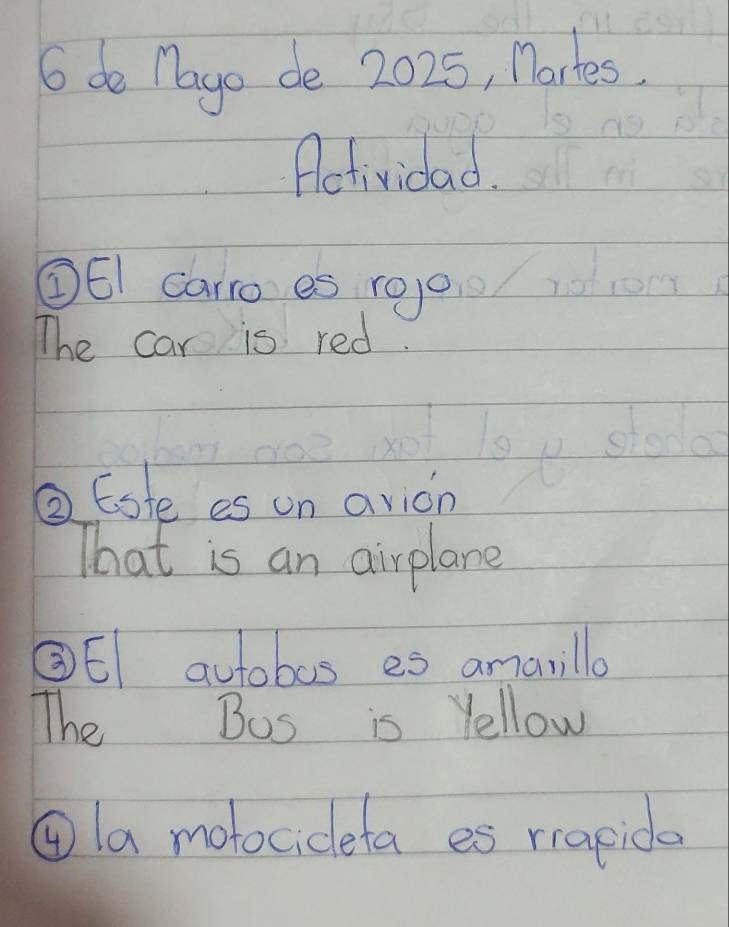 6 de Mayo de 2025, Martes.
Actividad.
① El carro es rojo
The car is red.
② Este es un avión
That is an airplane
③ El autobus es amarillo
The Bus is Yellow
④ la motocicleta es rrapida